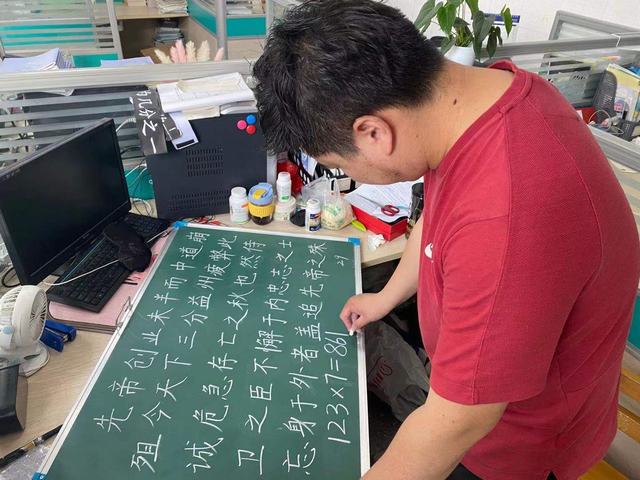 几分之一
先帝创业未半而中道崩
殂今天下三分益州疲弊此
诚危急存亡之秋也然侍
卫之臣不懈于内忠志之士
忘身于外者盖追先帝之殊
29
123×7=861